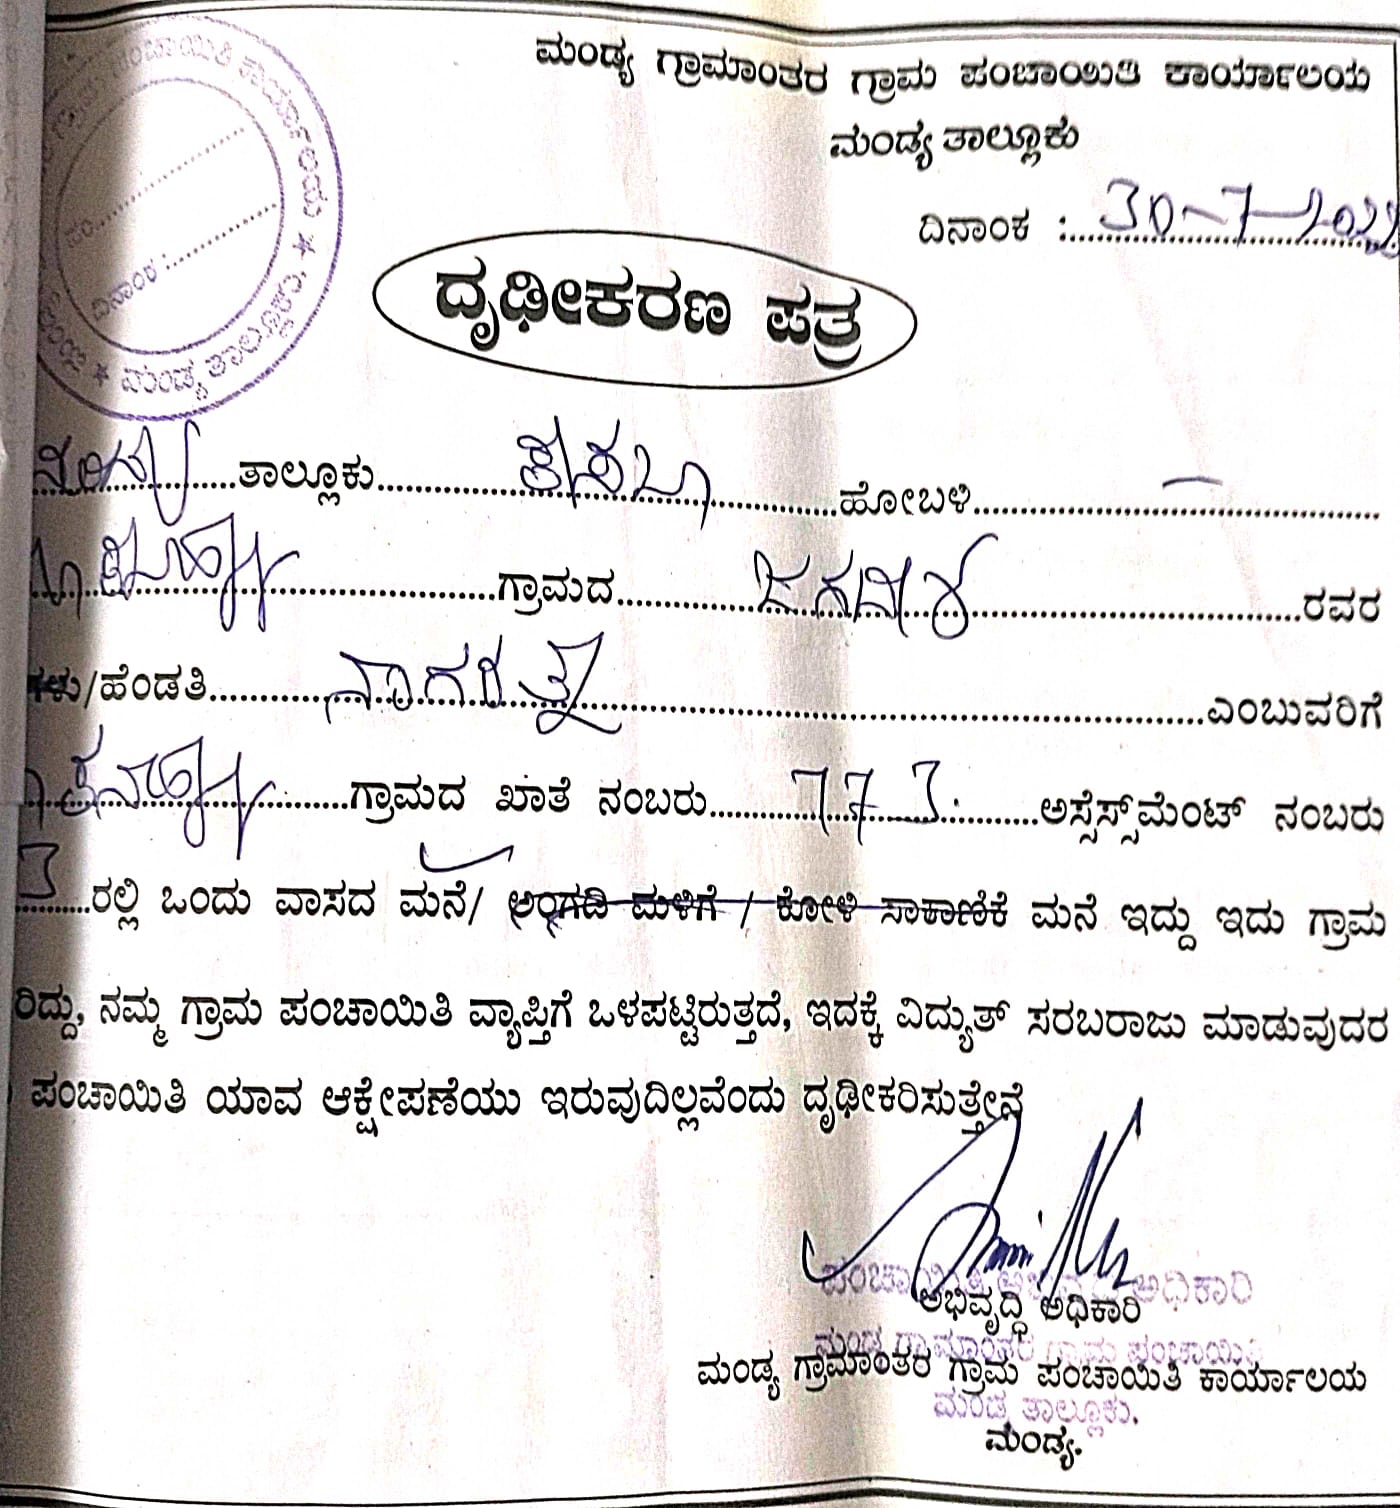 ಮಂಡ್ಯ ಗ್ರಾಮಾಂತರ ಗ್ರಾಮ ಪಂಚಾಯಿತಿ ಕಾರ್ಯಾಲಯ
ಮಂಡ್ಯ ತಾಲ್ಲೂಕು
ದಿನಾಂಕ : 30-7-2022
ಪಂಚಾಯಿತಿ ಕಾರ್ಯಾಲಯ ★ ಮಂಡ್ಯ ತಾಲ್ಲೂಕು ★
ಸಂ.
ದಿನಾಂಕ :
ದೃಢೀಕರಣ ಪತ್ರ
ಮಂಡ್ಯ ತಾಲ್ಲೂಕು ಕಸಬಾ ಹೋಬಳಿ —
ಗ್ರಾಮದ ಜಗದೀಶ ರವರ
ಗಳು/ಹೆಂಡತಿ ನಾಗರತ್ನ ಎಂಬುವರಿಗೆ
ಗ್ರಾಮದ ಖಾತೆ ನಂಬರು 773 ಅಸ್ಸೆಸ್ಸ್‌ಮೆಂಟ್ ನಂಬರು
3 ರಲ್ಲಿ ಒಂದು ವಾಸದ ಮನೆ/ ಅಂಗಡಿ ಮಳಿಗೆ / ಕೋಳಿ ಸಾಕಾಣಿಕೆ ಮನೆ ಇದ್ದು ಇದು ಗ್ರಾಮ
ರಿದ್ದು, ನಮ್ಮ ಗ್ರಾಮ ಪಂಚಾಯಿತಿ ವ್ಯಾಪ್ತಿಗೆ ಒಳಪಟ್ಟಿರುತ್ತದೆ, ಇದಕ್ಕೆ ವಿದ್ಯುತ್ ಸರಬರಾಜು ಮಾಡುವುದರ
ಪಂಚಾಯಿತಿ ಯಾವ ಆಕ್ಷೇಪಣೆಯು ಇರುವುದಿಲ್ಲವೆಂದು ದೃಢೀಕರಿಸುತ್ತೇನೆ
ಪಂಚಾಯಿತಿ ಅಭಿವೃದ್ಧಿ ಅಧಿಕಾರಿ
ಅಭಿವೃದ್ಧಿ ಅಧಿಕಾರಿ
ಮಂಡ್ಯ ಗ್ರಾಮಾಂತರ ಗ್ರಾಮ ಪಂಚಾಯಿತಿ
ಮಂಡ್ಯ ಗ್ರಾಮಾಂತರ ಗ್ರಾಮ ಪಂಚಾಯಿತಿ ಕಾರ್ಯಾಲಯ
ಮಂಡ್ಯ ತಾಲ್ಲೂಕು.
ಮಂಡ್ಯ.